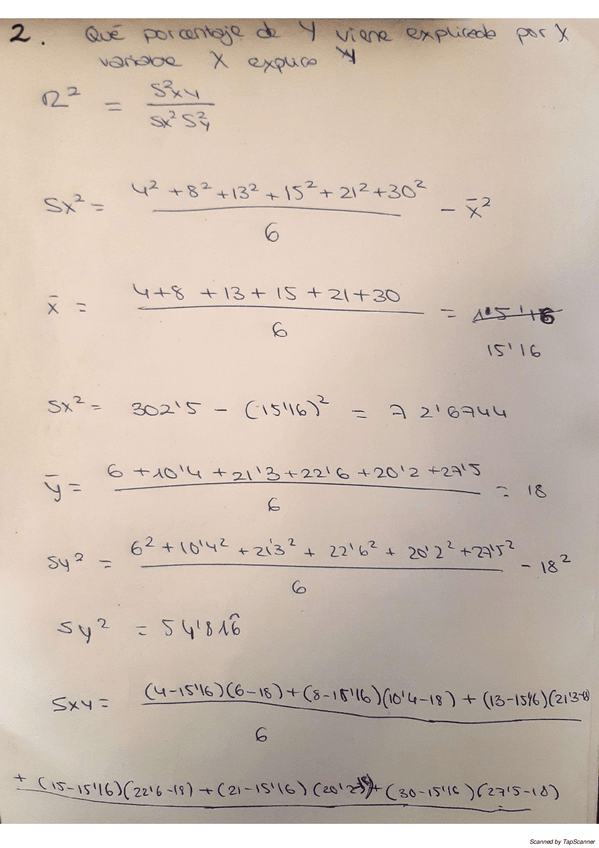 2. Qué porcentaje de Y viene explicada por X
variable X explica Y
R² = S²xy / Sx² S²y
Sx² = 4² + 8² + 13² + 15² + 21² + 30² / 6 - x̄²
x̄ = 4+8 +13 + 15 + 21 + 30 / 6 =
15'16
Sx² = 302'5 - (15'16)² = 72'6744
ȳ = 6 + 10'4 + 21'3 + 22'6 + 20'2 + 27'5 / 6 = 18
Sy² = 6² + 10'4² + 21'3² + 22'6² + 20'2² + 27'5² / 6 - 18²
Sy² = 54'816̂
Sxy = (4-15'16)(6-18) + (8-15'16)(10'4-18) + (13-15'16)(21'3-18) / 6
+ (15-15'16)(22'6-18) + (21-15'16)(20'2-18) + (30-15'16)(27'5-18)
Scanned by TapScanner